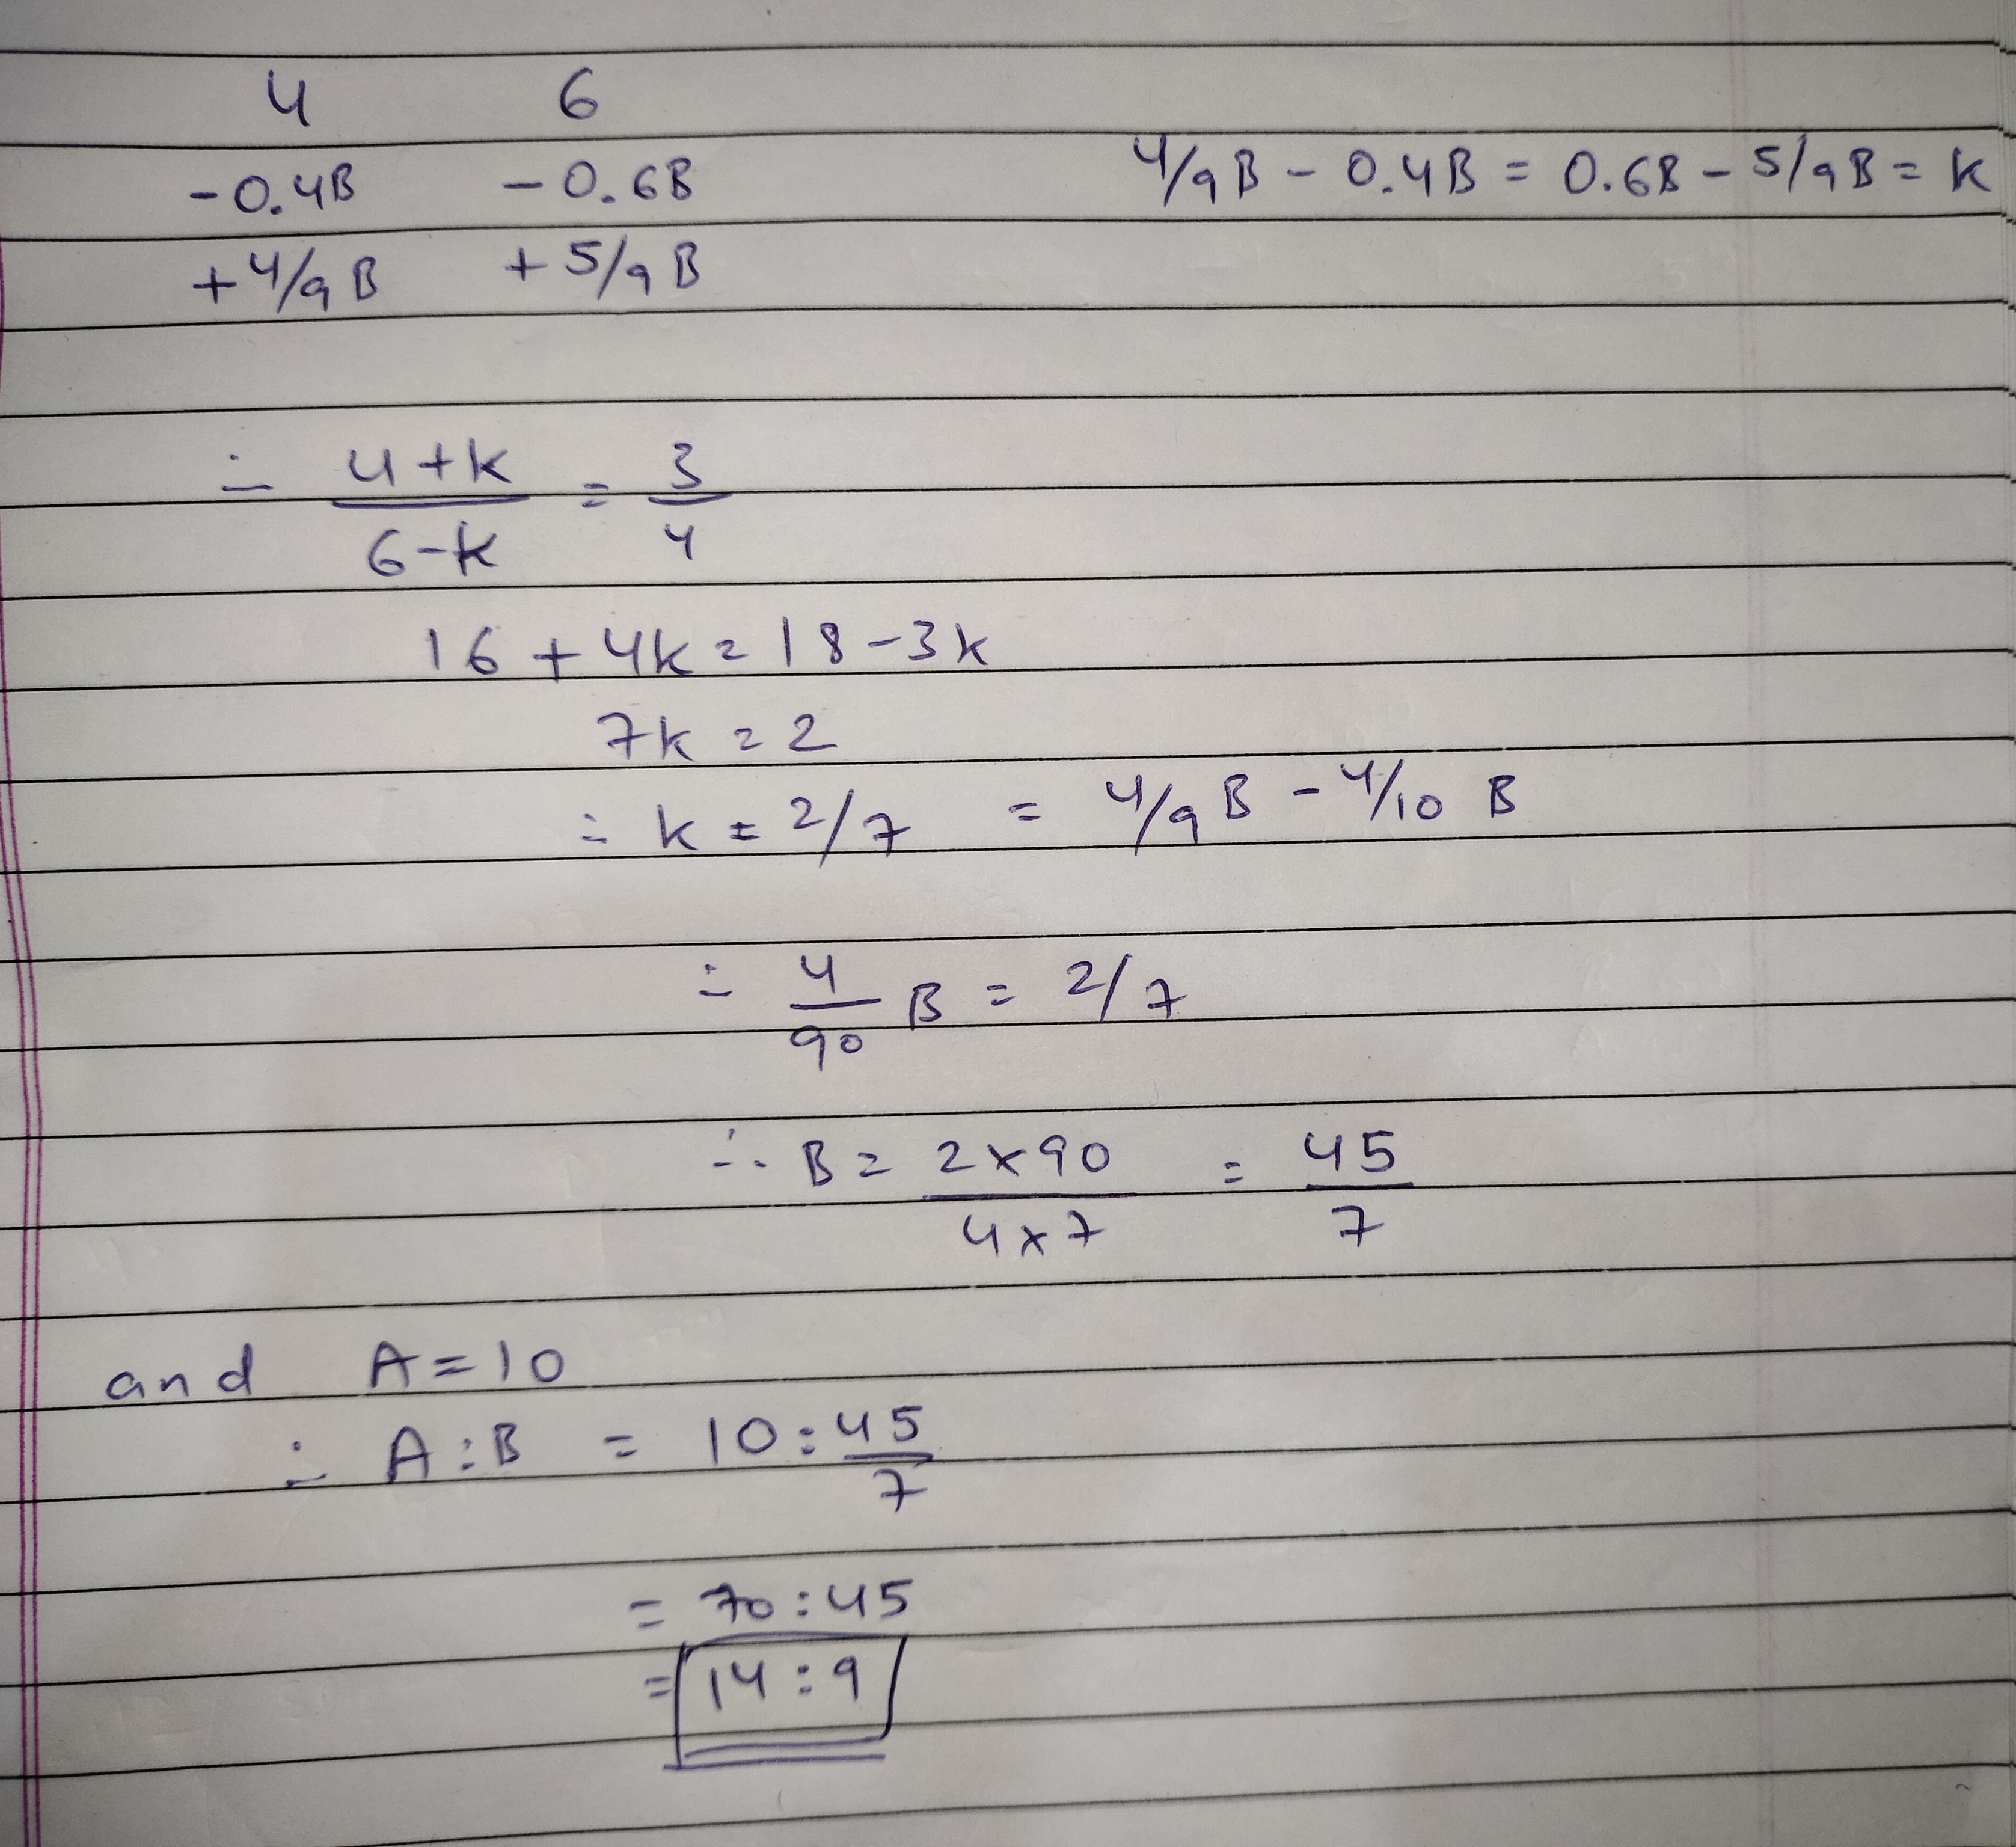 4 6
-0.4B -0.6B 4/9B - 0.4B = 0.6B - 5/9B = k
+4/9B +5/9B
∴ 4+k/6-k = 3/4
16 + 4k = 18 - 3k
7k = 2
∴ k = 2/7 = 4/9 B - 4/10 B
∴ 4/90 B = 2/7
∴ B = 2x90/4x7 = 45/7
and A = 10
∴ A:B = 10:45/7
= 70:45
= 14:9